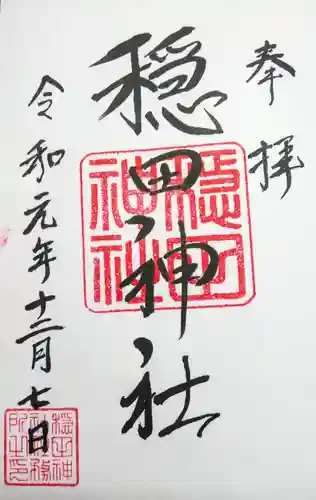 奉拝
穏田神社
令和元年十二月七日
穏田神社
穏田神
社務
所之印